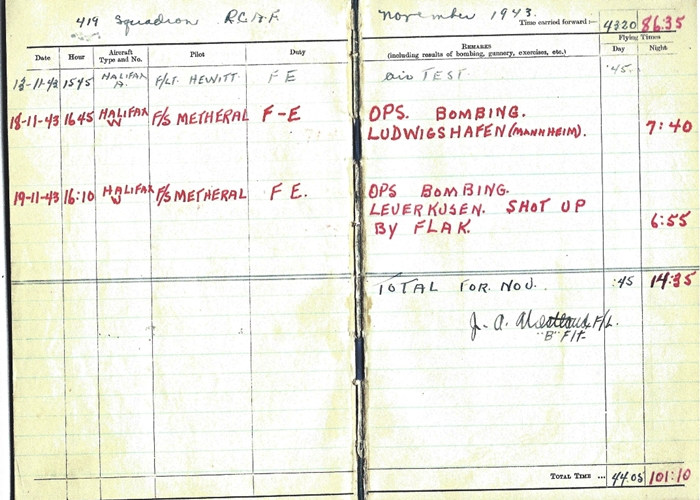 419 Squadron R.C.A.F. November 1943.
Time carried forward :— 4320 86:35
Flying Times
Date Hour Aircraft Type and No. Pilot Duty Remarks Day Night
(including results of bombing, gunnery, exercises, etc.)
-11-43 1545 HALIFAX A. F/LT. HEWITT. F E air TEST :45
18-11-43 1645 HALIFAX W F/S METHERAL F-E OPS. BOMBING.
LUDWIGSHAFEN (MANNHEIM). 7:40
19-11-43 16:10 HALIFAX F/S METHERAL F E. OPS BOMBING.
LEVERKUSEN. SHOT UP
BY FLAK. 6:55
TOTAL FOR. NOV. :45 14:35
J. A. F/L.
"B" F/t.
TOTAL TIME ... 44.05 101:10